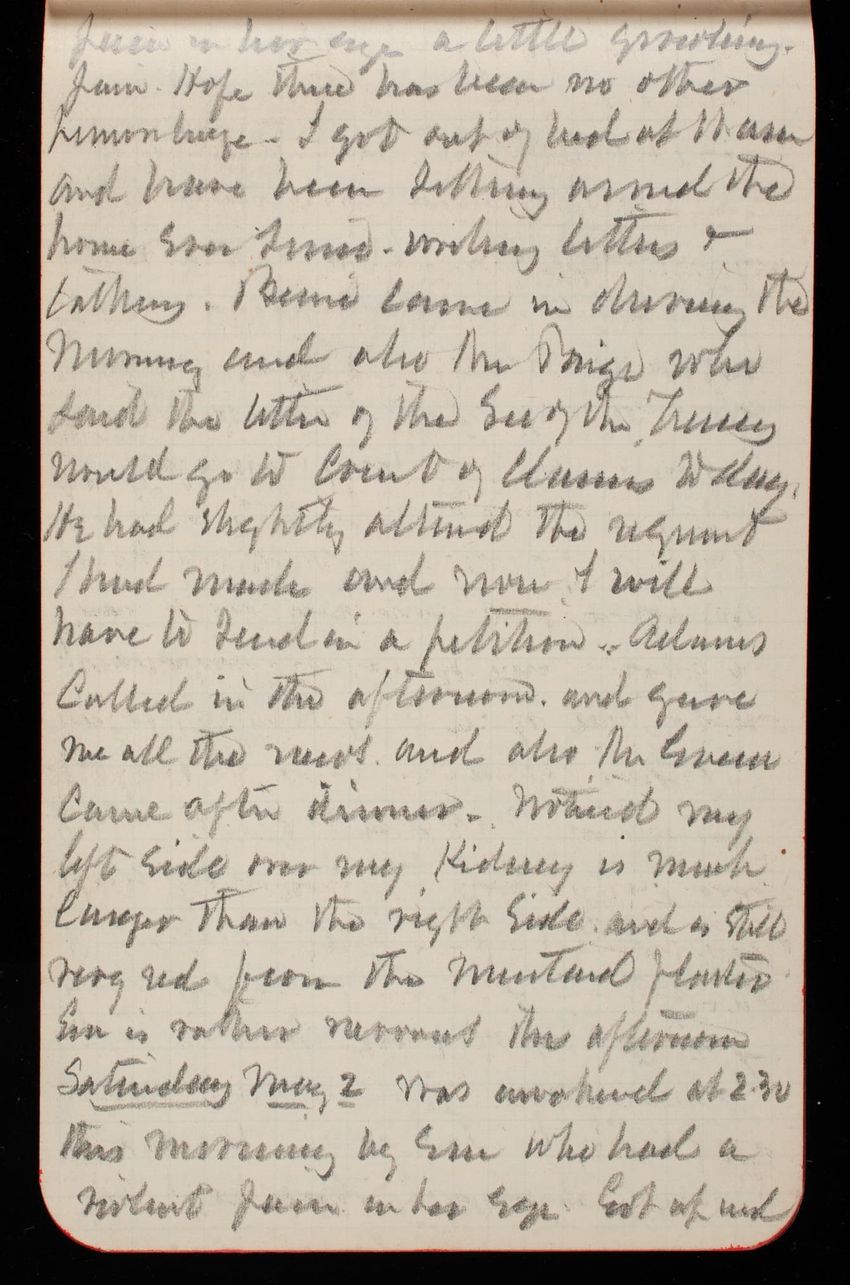 pain in her eye a little growling.
pain. Hope there has been no other
hemorhage. I got out of bed at 11 am
and have been sitting around the
home ever since. writing letters &
talking. Bennie came in during the
morning and also Mr Paige who
said the letter of the Sec of the Treasy
would go to Court of Claims today.
He had slightly altered the request
I had made and now I will
have to send in a petition. Adams
Called in the afternoon. and gave
me all the news. and also Mr Green
Came after dinner. Noticed my
left side over my Kidney is much
larger than the right side. and is still
very red from the mustard plaster
Em is rather nervous this afternoon
Saturday May 2 was awakened at 2.30
this morning by Em who had a
violent pain in her eye. Got up and